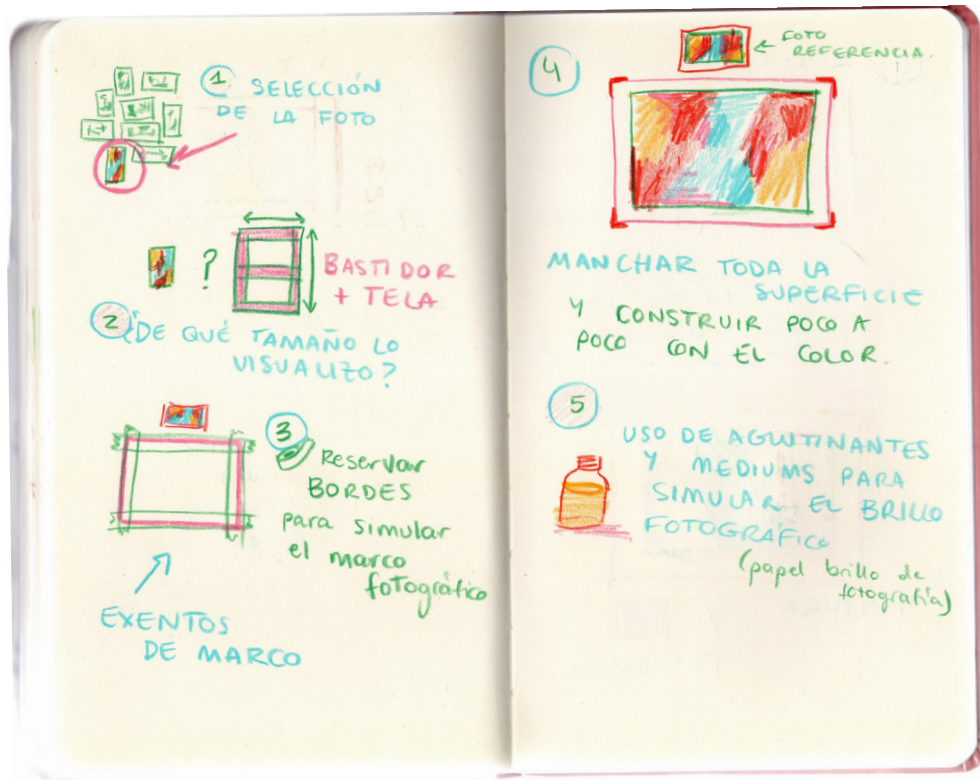 1 SELECCIÓN
DE LA FOTO
?
BASTIDOR
+ TELA
2 ¿DE QUÉ TAMAÑO LO
VISUALIZO?
3
Reservar
BORDES
para simular
el marco
fotográfico
EXENTOS
DE MARCO
4
← FOTO
REFERENCIA.
MANCHAR TODA LA
SUPERFICIE
Y CONSTRUIR POCO A
POCO CON EL COLOR.
5
USO DE AGLUTINANTES
Y MEDIUMS PARA
SIMULAR EL BRILLO
FOTOGRÁFICO
(papel brillo de
fotografía)